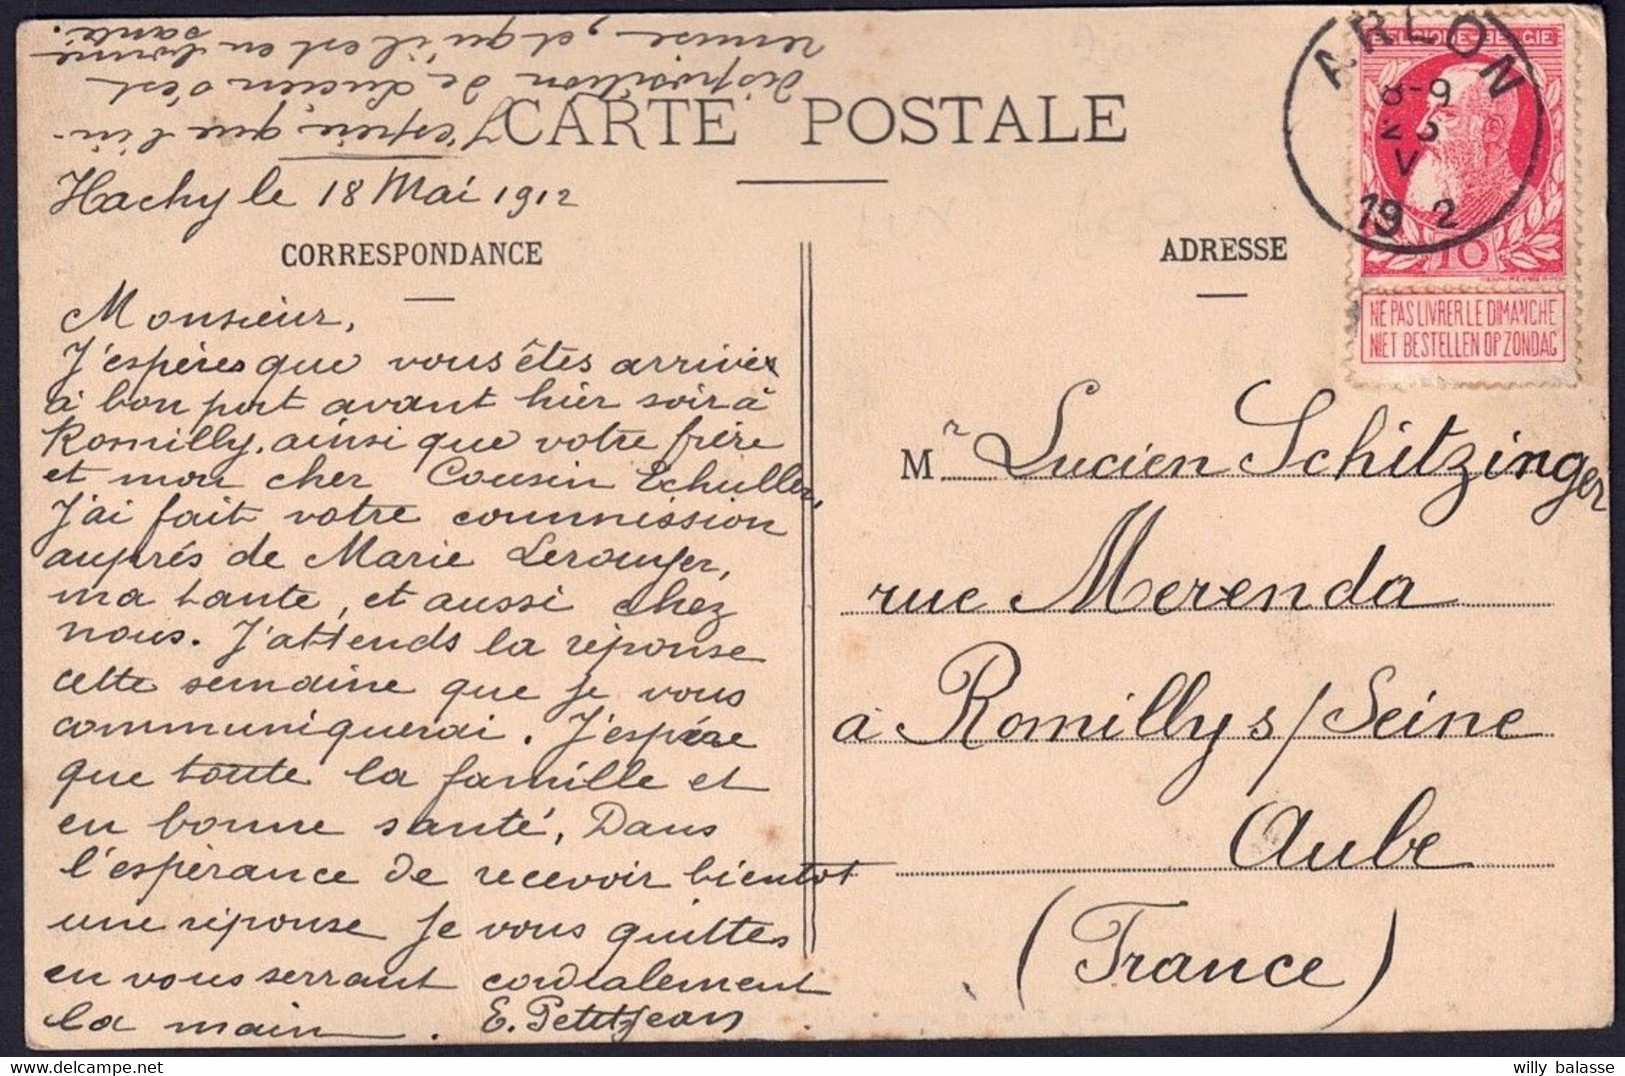 J'espère que l'in-
disposition de Lucien s'est
remise, et qu'il est en bonne
santé.
CARTE POSTALE
Hachy le 18 Mai 1912
CORRESPONDANCE
Monsieur,
J'espères que vous êtes arrivé
à bon port avant hier soir à
Romilly, ainsi que votre frère
et mon cher Cousin Echuller,
J'ai fait votre commission
auprés de Marie Leranger,
ma tante, et aussi chez
nous. J'attends la réponse
cette semaine que je vous
communiquerai. J'espére
que toute la famille et
en bonne santé, Dans
l'espérance de recevoir bientot
une réponse je vous quittes
en vous serrant cordialement
la main. E. Petitjean
ARLON
8-9
25
V
19 2
BELGIQUE-BELGIE
10
NE PAS LIVRER LE DIMANCHE
NIET BESTELLEN OP ZONDAG
ADRESSE
Mr Lucien Schitzinger
rue Merenda
à Romilly s/Seine
Aube
(France)
willy balasse